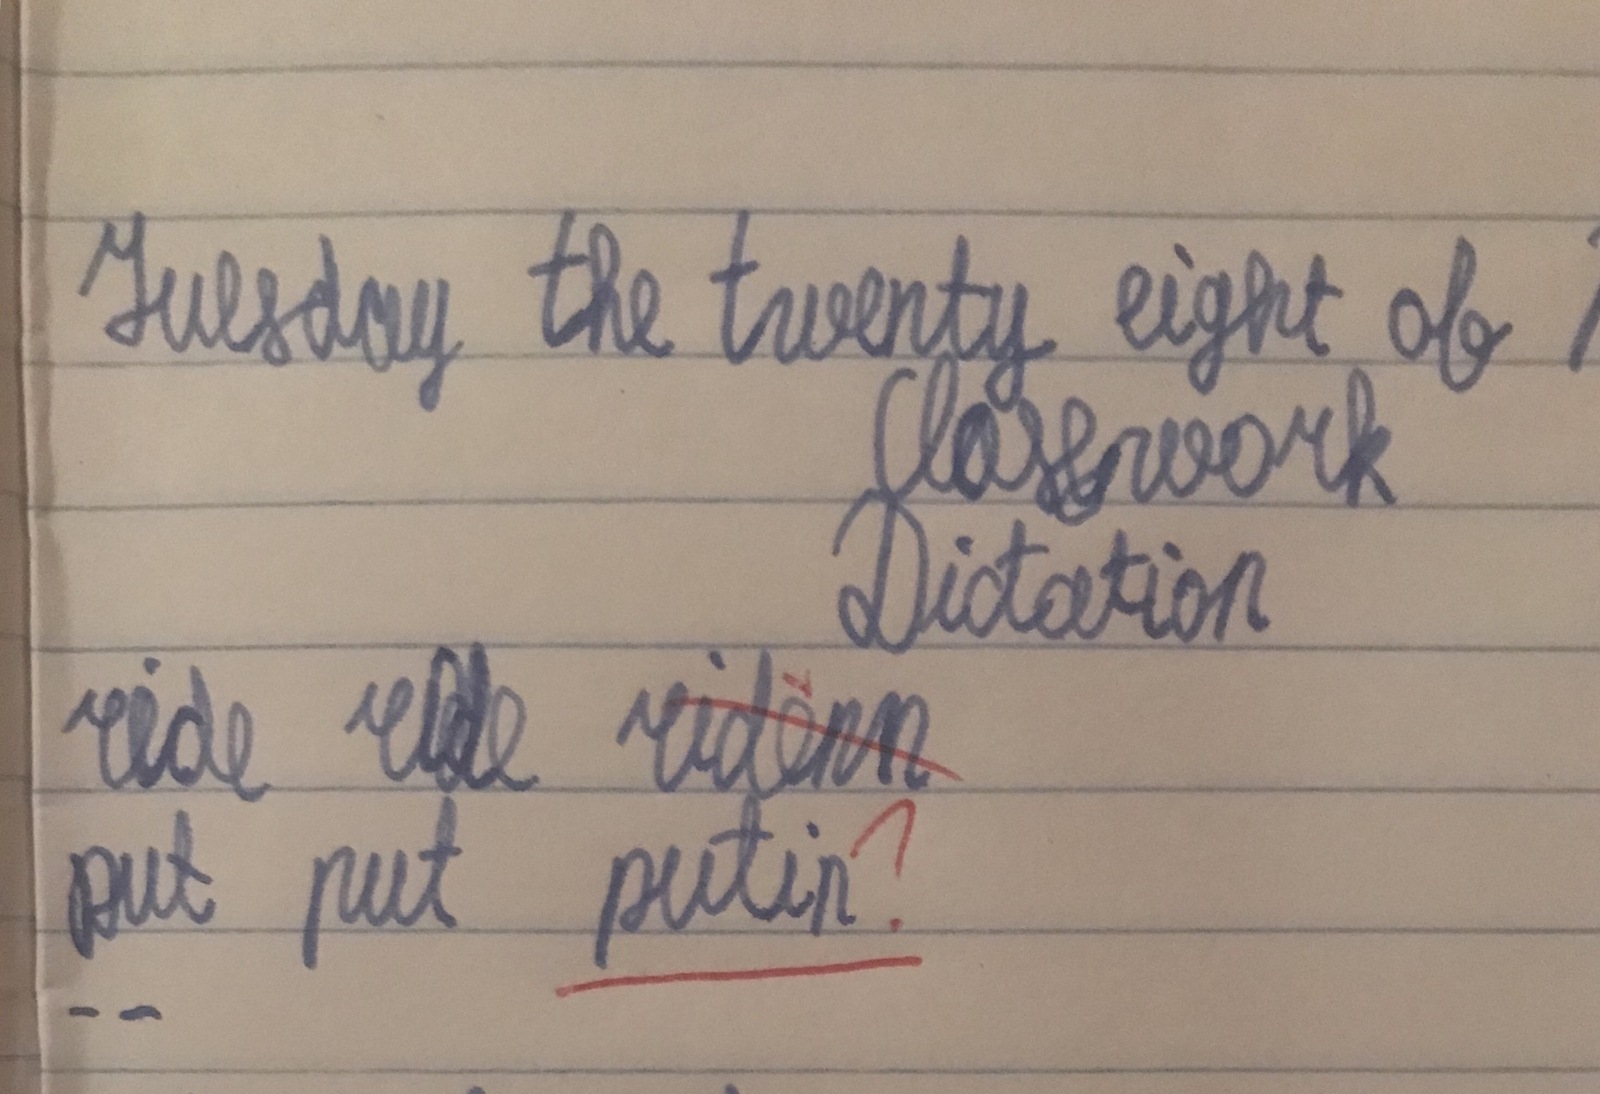 Tuesday the twenty eight of
Classwork
Dictation
ride ride
put put putin?
--